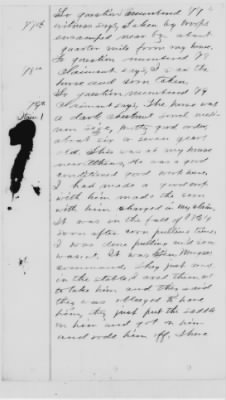 To question numbered 77
77th witness says, taken by troops
encamped near by about
quarter mile from my house.
To question numbered 78
78th Claimant says, I saw the
horse and seen taken.
To question numbered 79
79th Claimant says, The horse was
Item 1 a dark chestnut sorrel medi-
um size, pretty good order
about six or seven years
old. He was at my house
was a good
conditioned good work horse,
I had made a good crop
with him made the corn
with him charged in my claim.
It was in the fall of 1864
soon after corn pulling time,
I was done pulling mine
wasn't. It was Gen
command. They just
in the stables, I asked them not
to take him and they said
they was obliged to have
him, they just put the saddle
on him and got on him
and rode him off, There